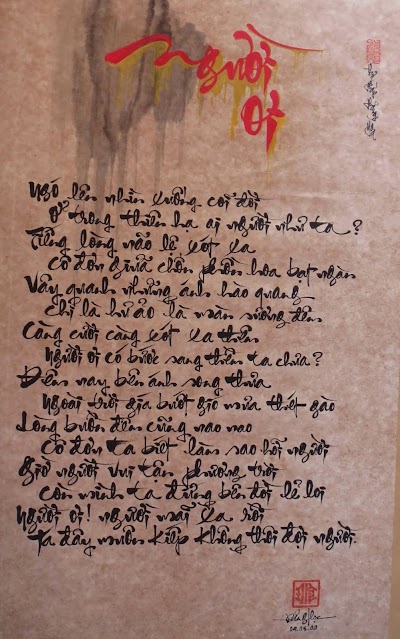 Người
ơi
Ngó lên nhìn xuống cõi đời
Ở trong thiên hạ ai người như ta?
Tiếng lòng não lề xót xa
Cô đơn giữa chốn phồn hoa bạt ngàn
Vây quanh những ánh hào quang
Chỉ là hư ảo là màn sương đêm
Càng cười càng xót xa thêm
Người ơi có bước sang thềm ta chưa?
Đêm nay bên ánh song thưa
Ngoài trời gia buốt gió mưa thét gào
Lòng buồn đêm cũng nao nao
Cô đơn ta biết làm sao hỡi người
Giờ người vui tận phương trời
Còn mình ta đứng bên đời lẻ loi
Người ơi! người mãi xa rồi
Ta đây muôn kiếp không thôi đợi người.